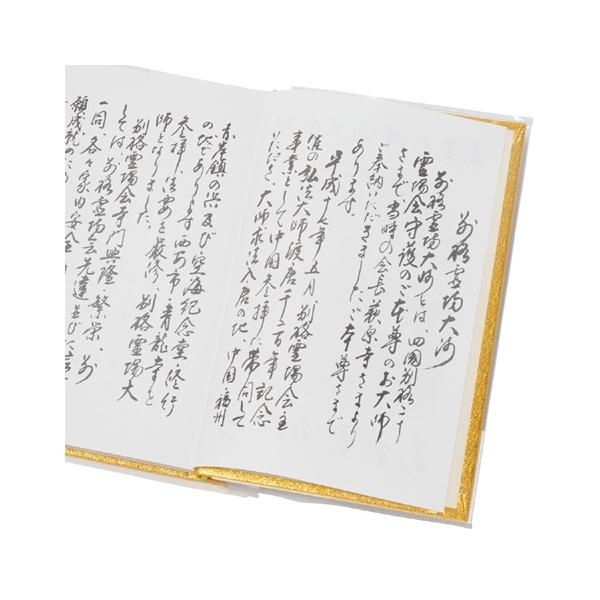 別格霊場大師
別格霊場大師とは、四国別格二十
霊場会守護のご本尊のお大師
さまで、当時の会長萩原寺さまより
ご奉納いただきました、ご本尊さまで
あります。
平成十七年五月、別格霊場会主
催の弘法大師渡唐千二百年記念
事業として中国参拝に帯同して
いただき、大師求法入唐の地、中国・福州
赤岸鎮の浜及び空海紀念堂、修行
の地であります西安市・青龍寺と
参拝、法要を厳修、別格霊場大
師となりました。
別格霊場会寺門興隆繁栄、並
しては、
一同、各々家内安全
願成就のため